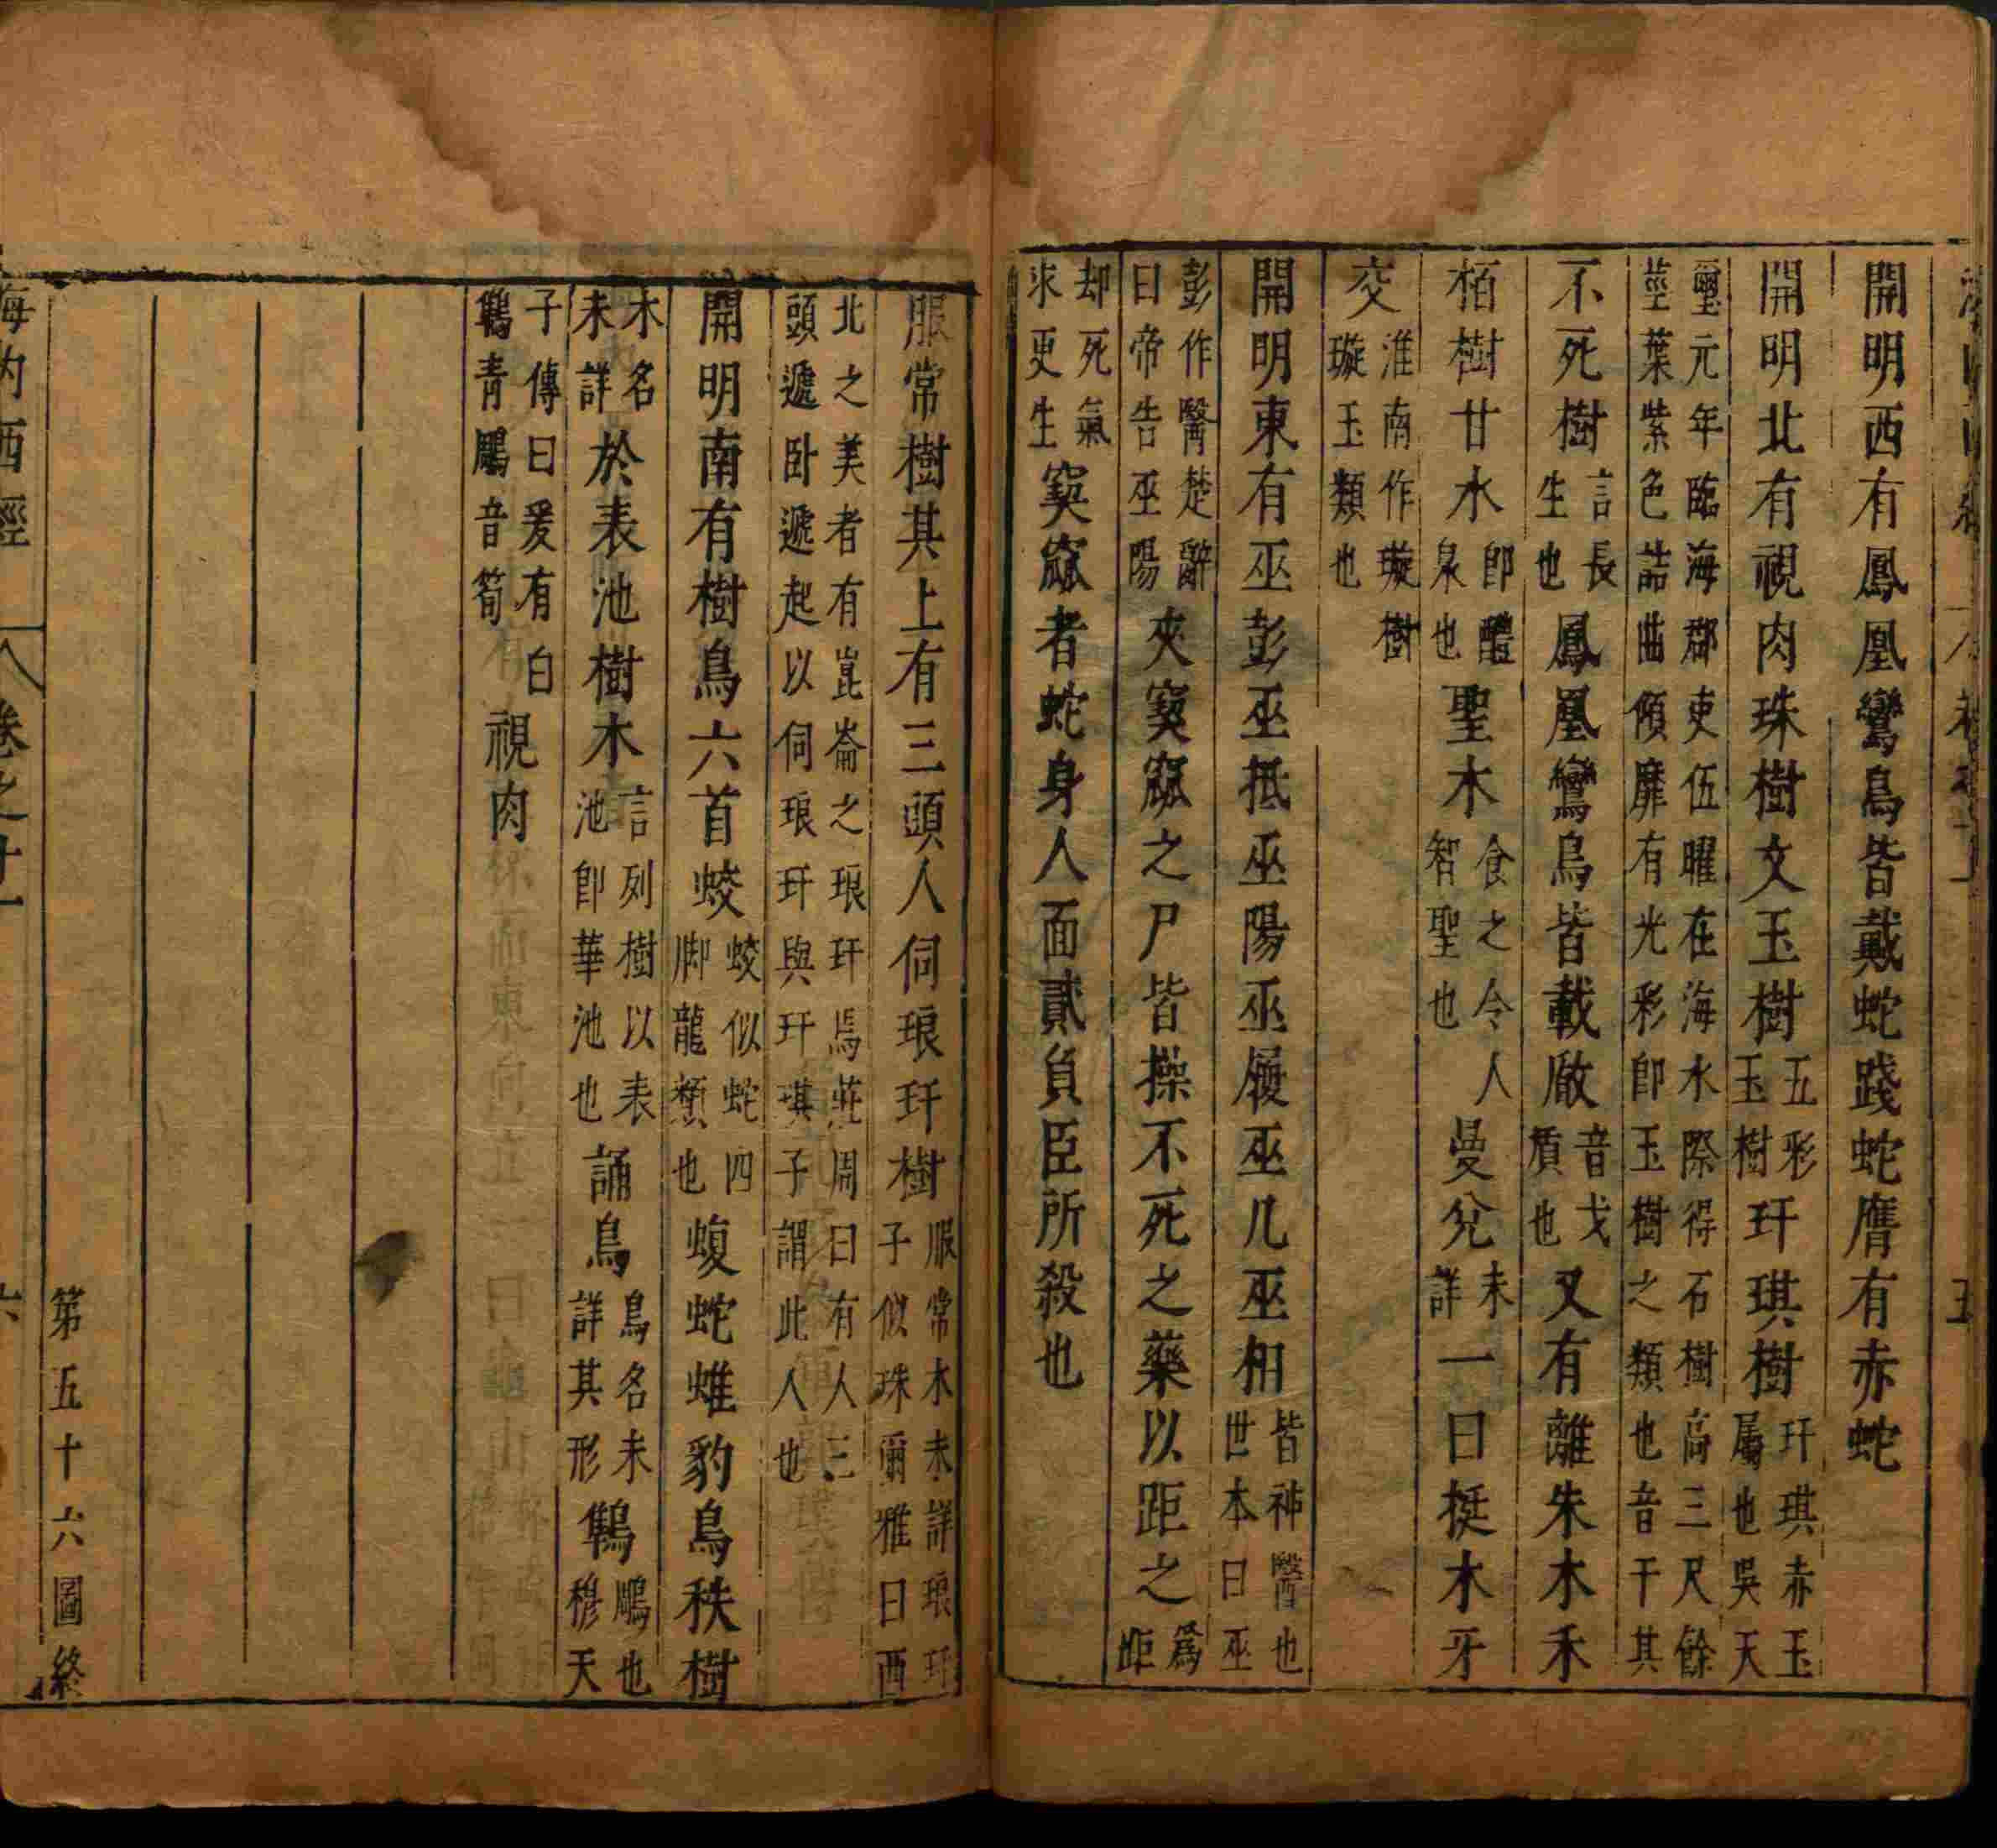 開明西有鳳凰鸞鳥皆戴蛇踐蛇膺有赤蛇
開明北有視肉珠樹文玉樹五彩玉樹玗琪樹玗琪赤玉屬也吳天
璽元年臨海郡吏伍曜在海水際得石樹高三尺餘莖葉紫色詰曲傾靡有光彩即玉樹之類也音干其
不死樹言長生也鳳凰鸞鳥皆載音戈也又有離朱木禾
栢樹甘水即醴泉也聖木食之令人智聖也曼兌未詳一曰挺木牙
交淮南作璇樹璇玉類也
開明東有巫彭巫抵巫陽巫履巫凡巫相皆神醫也世本曰巫
彭作醫楚辭曰帝告巫陽夾窫窳之尸皆操不死之藥以距之為距
却死氣求更生窫窳者蛇身人面貳負臣所殺也
服常樹其上有三頭人伺琅玕樹服常木未詳琅玕子似珠爾雅曰西
北之美者有崑崙之琅玕焉莊周曰有人三頭遞臥遞起以伺琅玕與玕琪子謂此人也
開明南有樹鳥六首蛟蛟似蛇四脚龍類也蝮蛇蜼豹鳥秩樹
木名未詳於表池樹木言列樹以表池即華池也誦鳥鳥名未詳其形鶽鵰也穆天
子傳曰爰有白鶽青鵰音筍視肉
第五十六圖終
海內西經 卷之十一 六